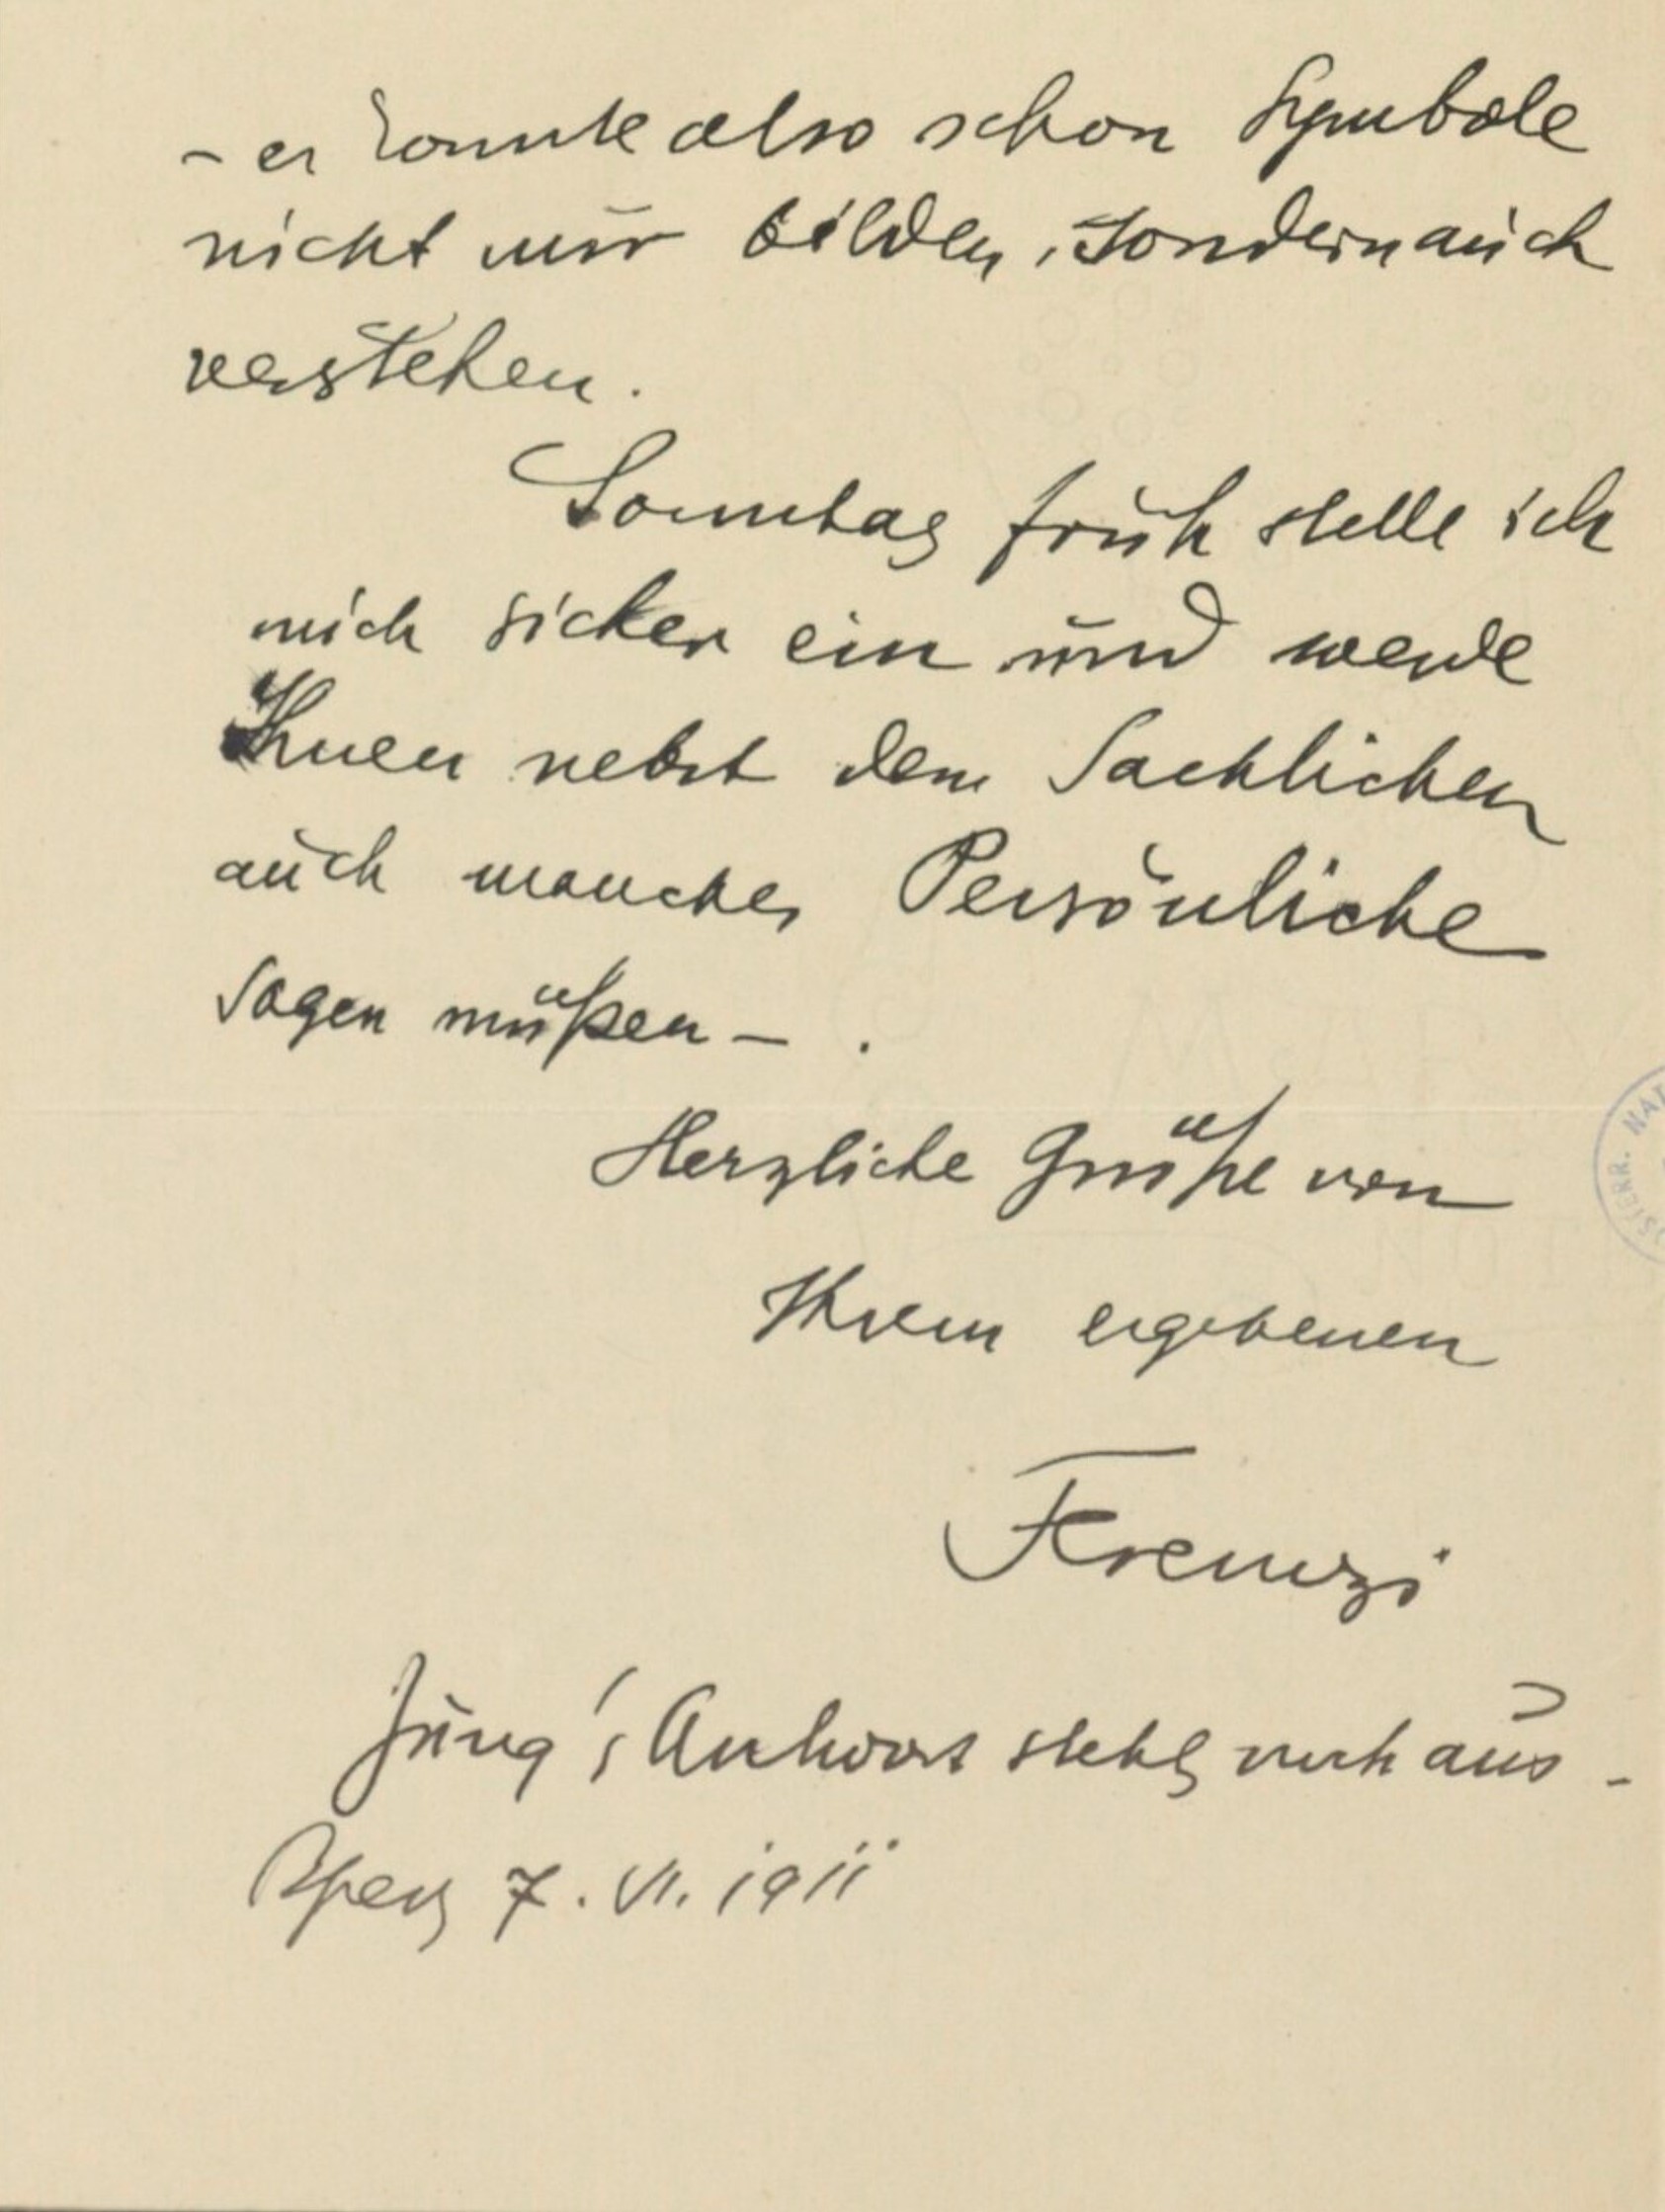 - er konnte also schon Symbole
nicht nur bilden, sondern auch
verstehen.
Sonntag früh stelle ich
mich sicher ein und werde
Ihnen nebst dem Sachlichen
auch manches Persönliche
sagen müßen - .
Herzliche Grüße von
Ihrem ergebenen
Ferenczi
Jung's Antwort steht noch aus -
Bpest 7. VI. 1911
ÖSTERR. NAT